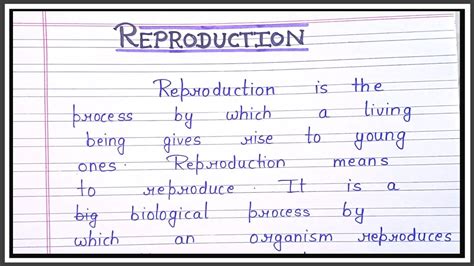 REPRODUCTION
Reproduction is the
process by which a living
being gives rise to young
ones. Reproduction means
to reproduce. It is a
big biological process by
which an organism reproduces